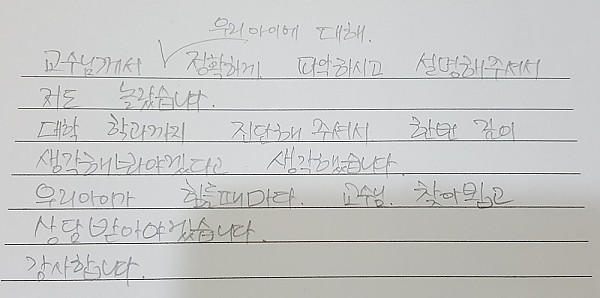 우리아이에 대해.
교수님께서 정확하게 파악하시고 설명해주셔서
저도 놀랐습니다.
대학 학과까지 진단해 주셔서 한번 깊이
생각해봐야겠다고 생각했습니다.
우리아이가 힘들때마다. 교수님. 찾아뵙고
상담받아야겠습니다.
감사합니다.